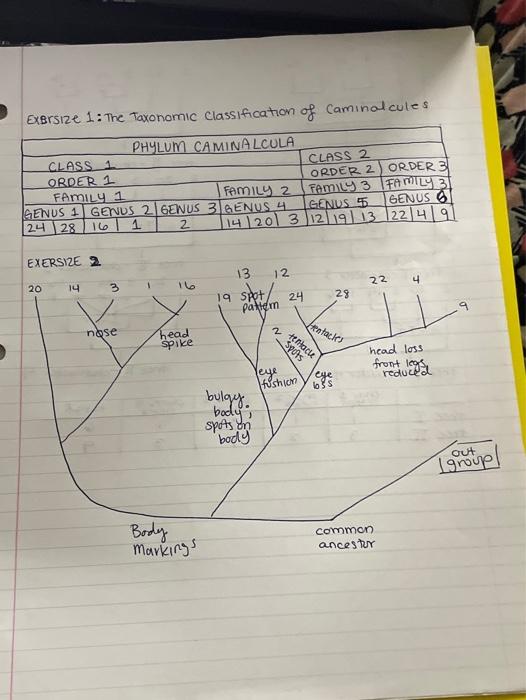 EXERSIZE 1: The Taxonomic Classification of Caminalcules
PHYLUM CAMINALCULA
CLASS 1 CLASS 2
ORDER 1 ORDER 2 ORDER 3
FAMILY 1 FAMILY 2 FAMILY 3 FAMILY 3
GENUS 1 GENUS 2 GENUS 3 GENUS 4 GENUS 5 GENUS 6
24 28 16 1 2 14 20 3 12 19 13 22 4 9
EXERSIZE 2
20 14 3 1 16
nose
head
spike
13 12
19 spot
pattern
24 28
2
tentacle
spots
tentacles
22 4
9
eye
fushion
eye
loss
head loss
front legs
reduced
bulgy
body;
spots on
body
out
group
Body
Markings
common
ancestor